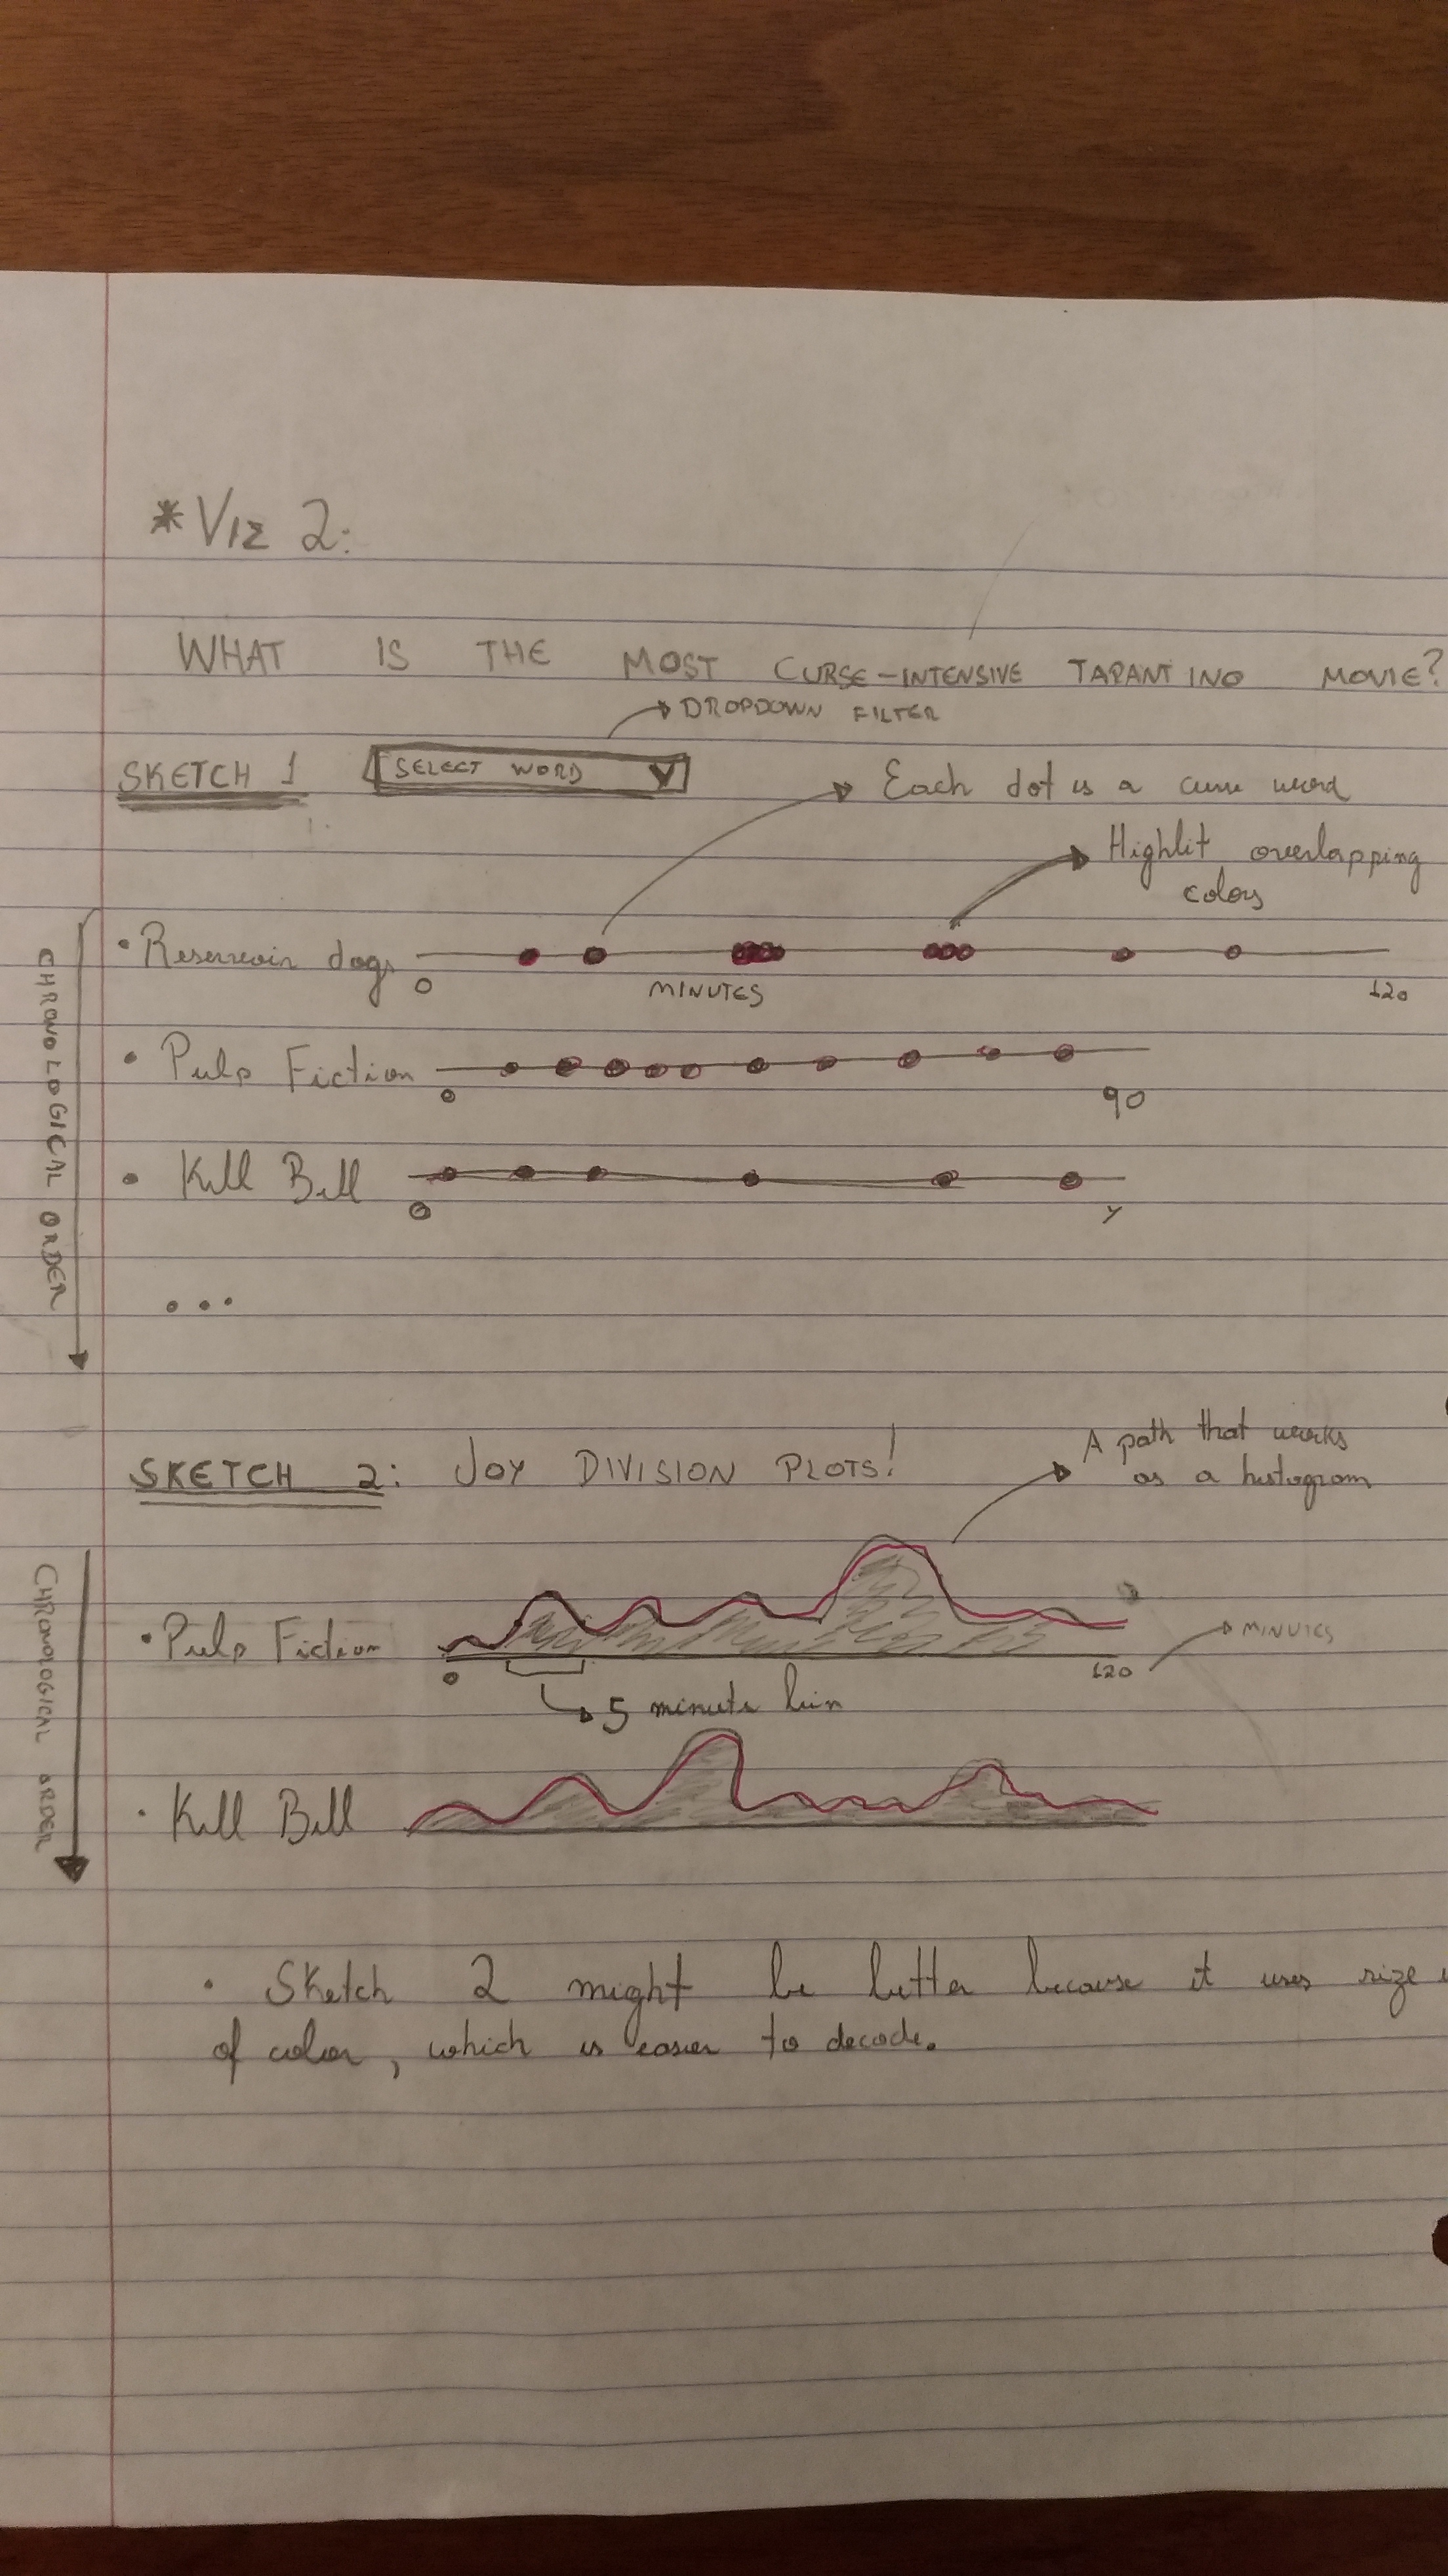 *Viz 2:
WHAT IS THE MOST CURSE-INTENSIVE TARANTINO MOVIE?
DROPDOWN FILTER
SKETCH 1
SELECT WORD
Each dot is a curse word
Highlit overlapping
colors
CHRONOLOGICAL ORDER
• Reservoir dogs
0
MINUTES
120
• Pulp Fiction
0
90
• Kill Bill
0
y
...
SKETCH 2: JOY DIVISION PLOTS!
A path that works
as a histogram
CHRONOLOGICAL ORDER
• Pulp Fiction
0
120
MINUTES
5 minute bin
• Kill Bill
• Sketch 2 might be better because it uses size
of color, which is easier to decode.